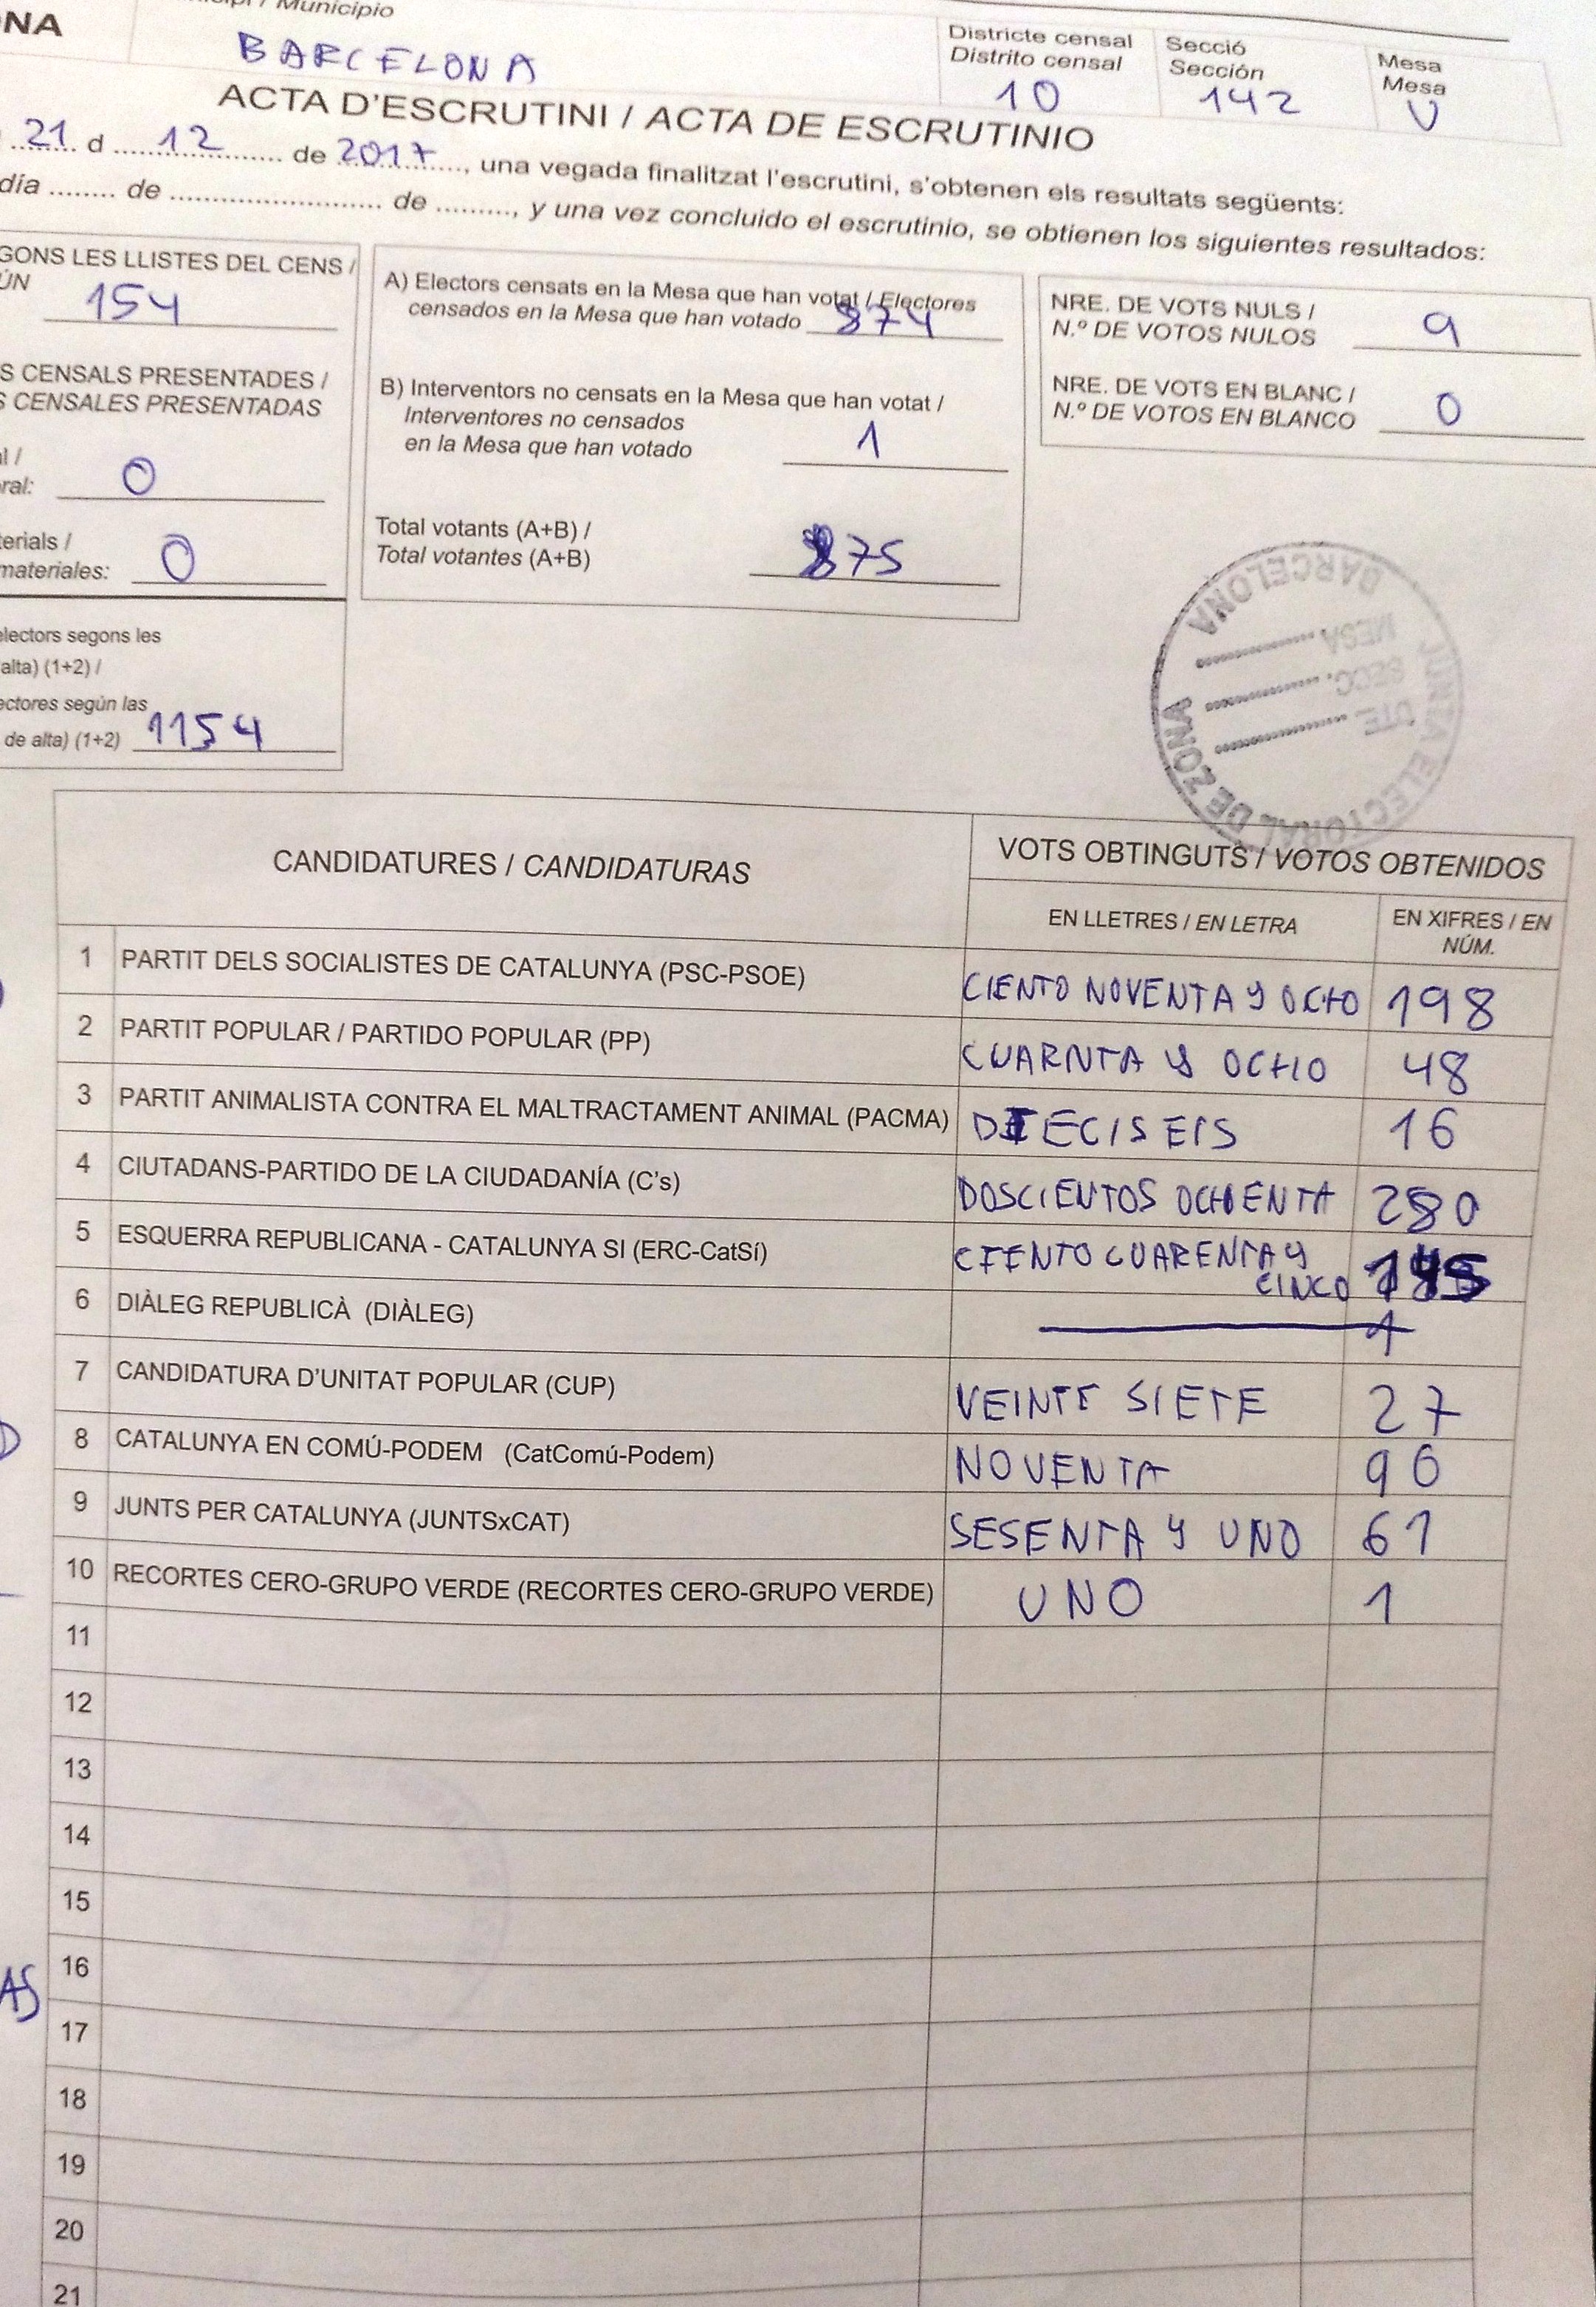 NA
Municipi / Municipio
BARCELONA
Districte censal
Distrito censal
10
Secció
Sección
142
Mesa
Mesa
U
ACTA D'ESCRUTINI / ACTA DE ESCRUTINIO
21 d 12 de 2017, una vegada finalitzat l'escrutini, s'obtenen els resultats següents:
día ........ de ........................ de ........., y una vez concluido el escrutinio, se obtienen los siguientes resultados:
GONS LES LLISTES DEL CENS /
ÚN
154
S CENSALS PRESENTADES /
S CENSALES PRESENTADAS
al /
ral: 0
terials /
materiales: 0
electors segons les
alta) (1+2) /
ectores según las
de alta) (1+2) 1154
A) Electors censats en la Mesa que han votat / Electores
censados en la Mesa que han votado 874
B) Interventors no censats en la Mesa que han votat /
Interventores no censados
en la Mesa que han votado 1
Total votants (A+B) /
Total votantes (A+B) 875
NRE. DE VOTS NULS /
N.º DE VOTOS NULOS 9
NRE. DE VOTS EN BLANC /
N.º DE VOTOS EN BLANCO 0
JUNTA ELECTORAL DE ZONA
BARCELONA
DTE.
SECC.
MESA
CANDIDATURES / CANDIDATURAS
VOTS OBTINGUTS / VOTOS OBTENIDOS
EN LLETRES / EN LETRA
EN XIFRES / EN
NÚM.
1 PARTIT DELS SOCIALISTES DE CATALUNYA (PSC-PSOE) CIENTO NOVENTA Y OCHO 198
2 PARTIT POPULAR / PARTIDO POPULAR (PP) CUARNTA Y OCHO 48
3 PARTIT ANIMALISTA CONTRA EL MALTRACTAMENT ANIMAL (PACMA) DIECISEIS 16
4 CIUTADANS-PARTIDO DE LA CIUDADANÍA (C's) DOSCIENTOS OCHENTA 280
5 ESQUERRA REPUBLICANA - CATALUNYA SI (ERC-CatSí) CIENTO CUARENTA Y
CINCO 145
6 DIÀLEG REPUBLICÀ (DIÀLEG) 1
7 CANDIDATURA D'UNITAT POPULAR (CUP) VEINTE SIETE 27
8 CATALUNYA EN COMÚ-PODEM (CatComú-Podem) NOVENTA 90
9 JUNTS PER CATALUNYA (JUNTSxCAT) SESENTA Y UNO 61
10 RECORTES CERO-GRUPO VERDE (RECORTES CERO-GRUPO VERDE) UNO 1
11
12
13
14
15
16
AS
17
18
19
20
21